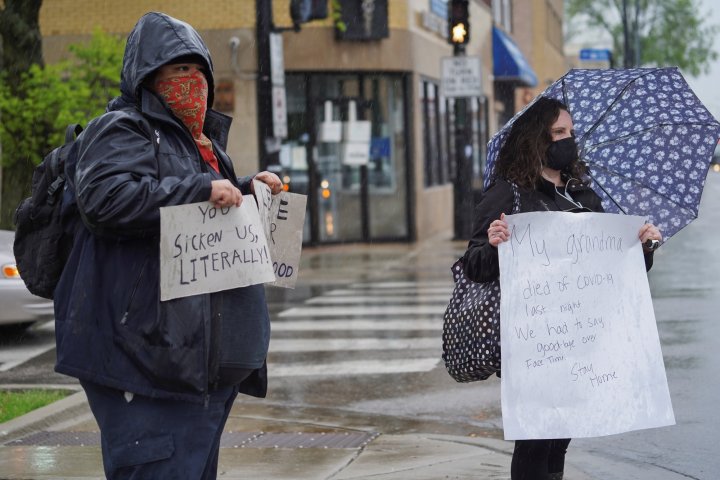 YOU
SICKEN US,
LITERALLY!
E
OOD
My grandma
died of COVID-19
last night
We had to say
goodbye over
Face Time.
Stay
Home